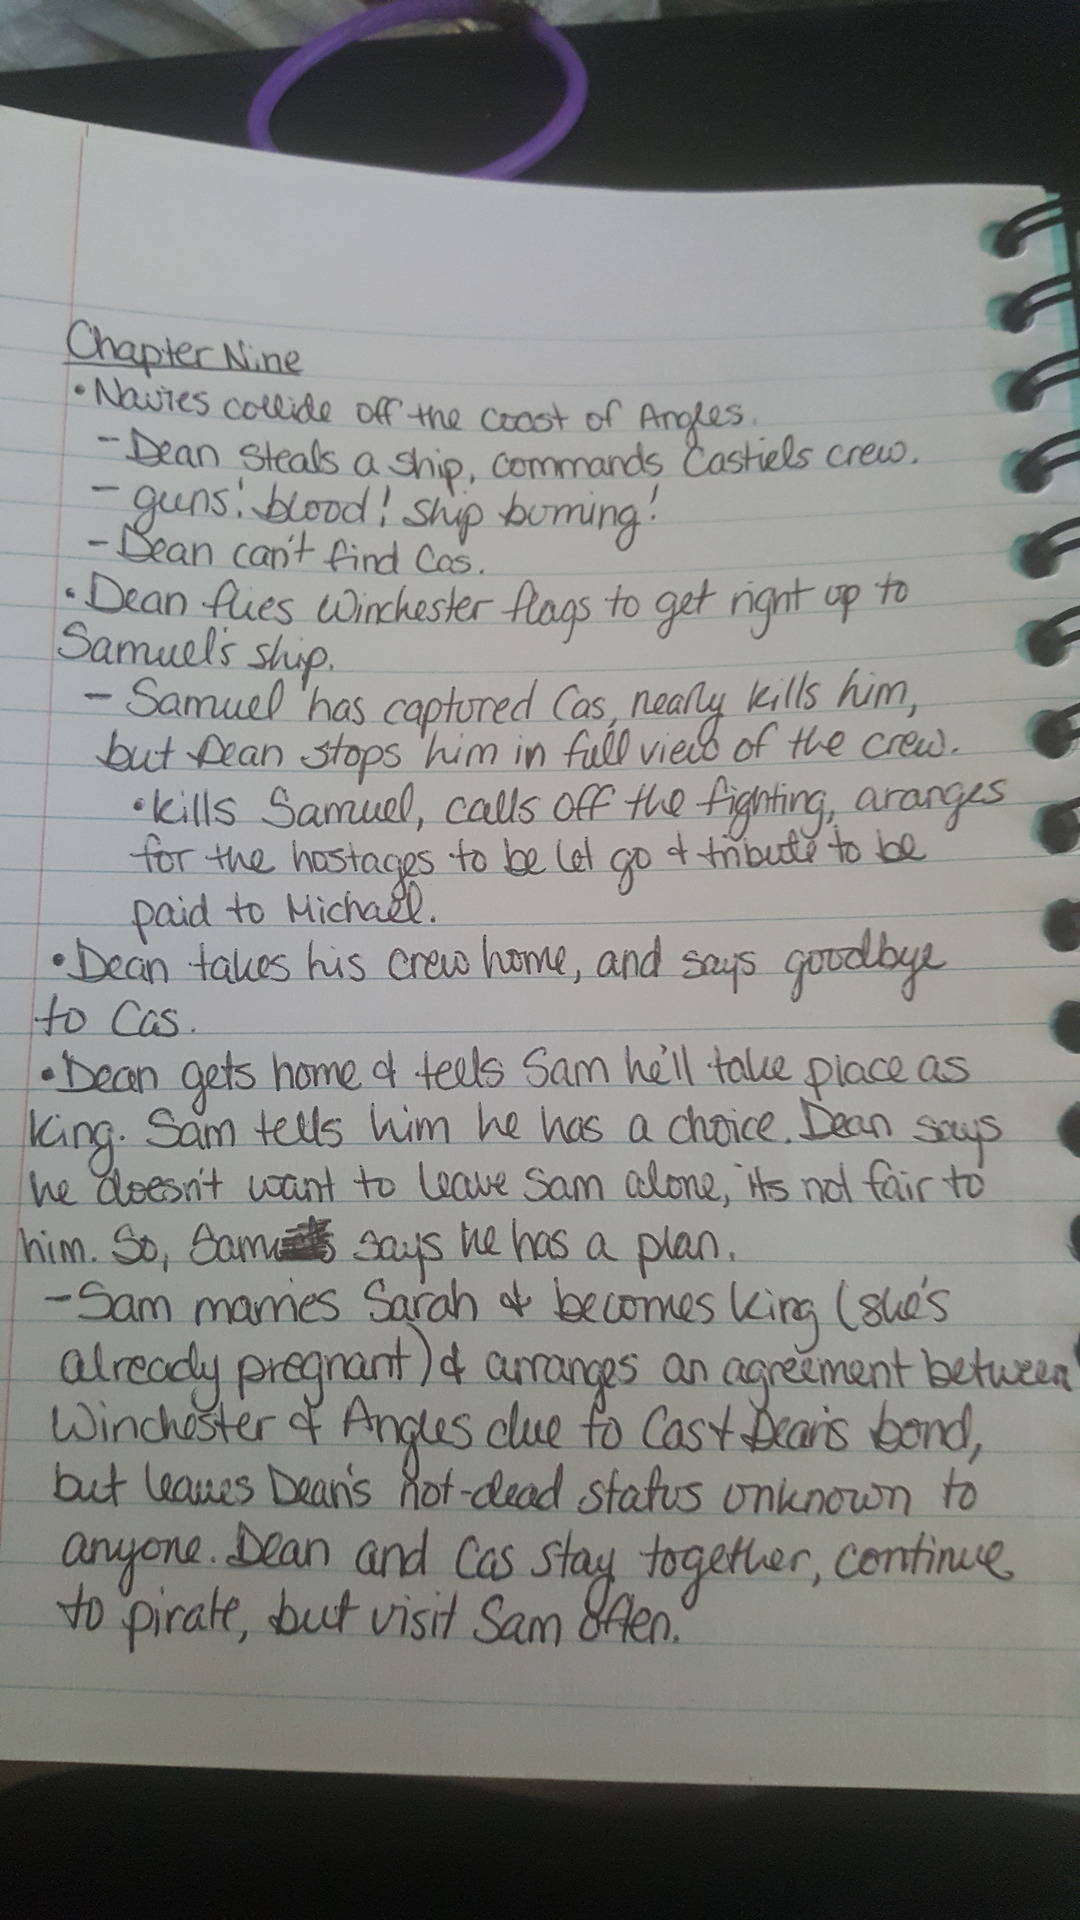 Chapter Nine
• Navies collide off the coast of Angles.
- Dean steals a ship, commands Castiels crew.
- guns! blood! ship burning!
- Dean can't find Cas.
• Dean flies Winchester flags to get right up to
Samuel's ship.
- Samuel has captured Cas, nearly kills him,
but Dean stops him in full view of the crew.
• kills Samuel, calls off the fighting, aranges
for the hostages to be let go & tribute to be
paid to Michael.
• Dean takes his crew home, and says goodbye
to Cas.
• Dean gets home & tells Sam he'll take place as
king. Sam tells him he has a choice. Dean says
he doesn't want to leave Sam alone, its not fair to
him. So, Sam says he has a plan.
- Sam marries Sarah & becomes king (she's
already pregnant) & arranges an agreement between
Winchester & Angles due to Cas & Dean's bond,
but leaves Dean's not-dead status unknown to
anyone. Dean and Cas stay together, continue
to pirate, but visit Sam often.